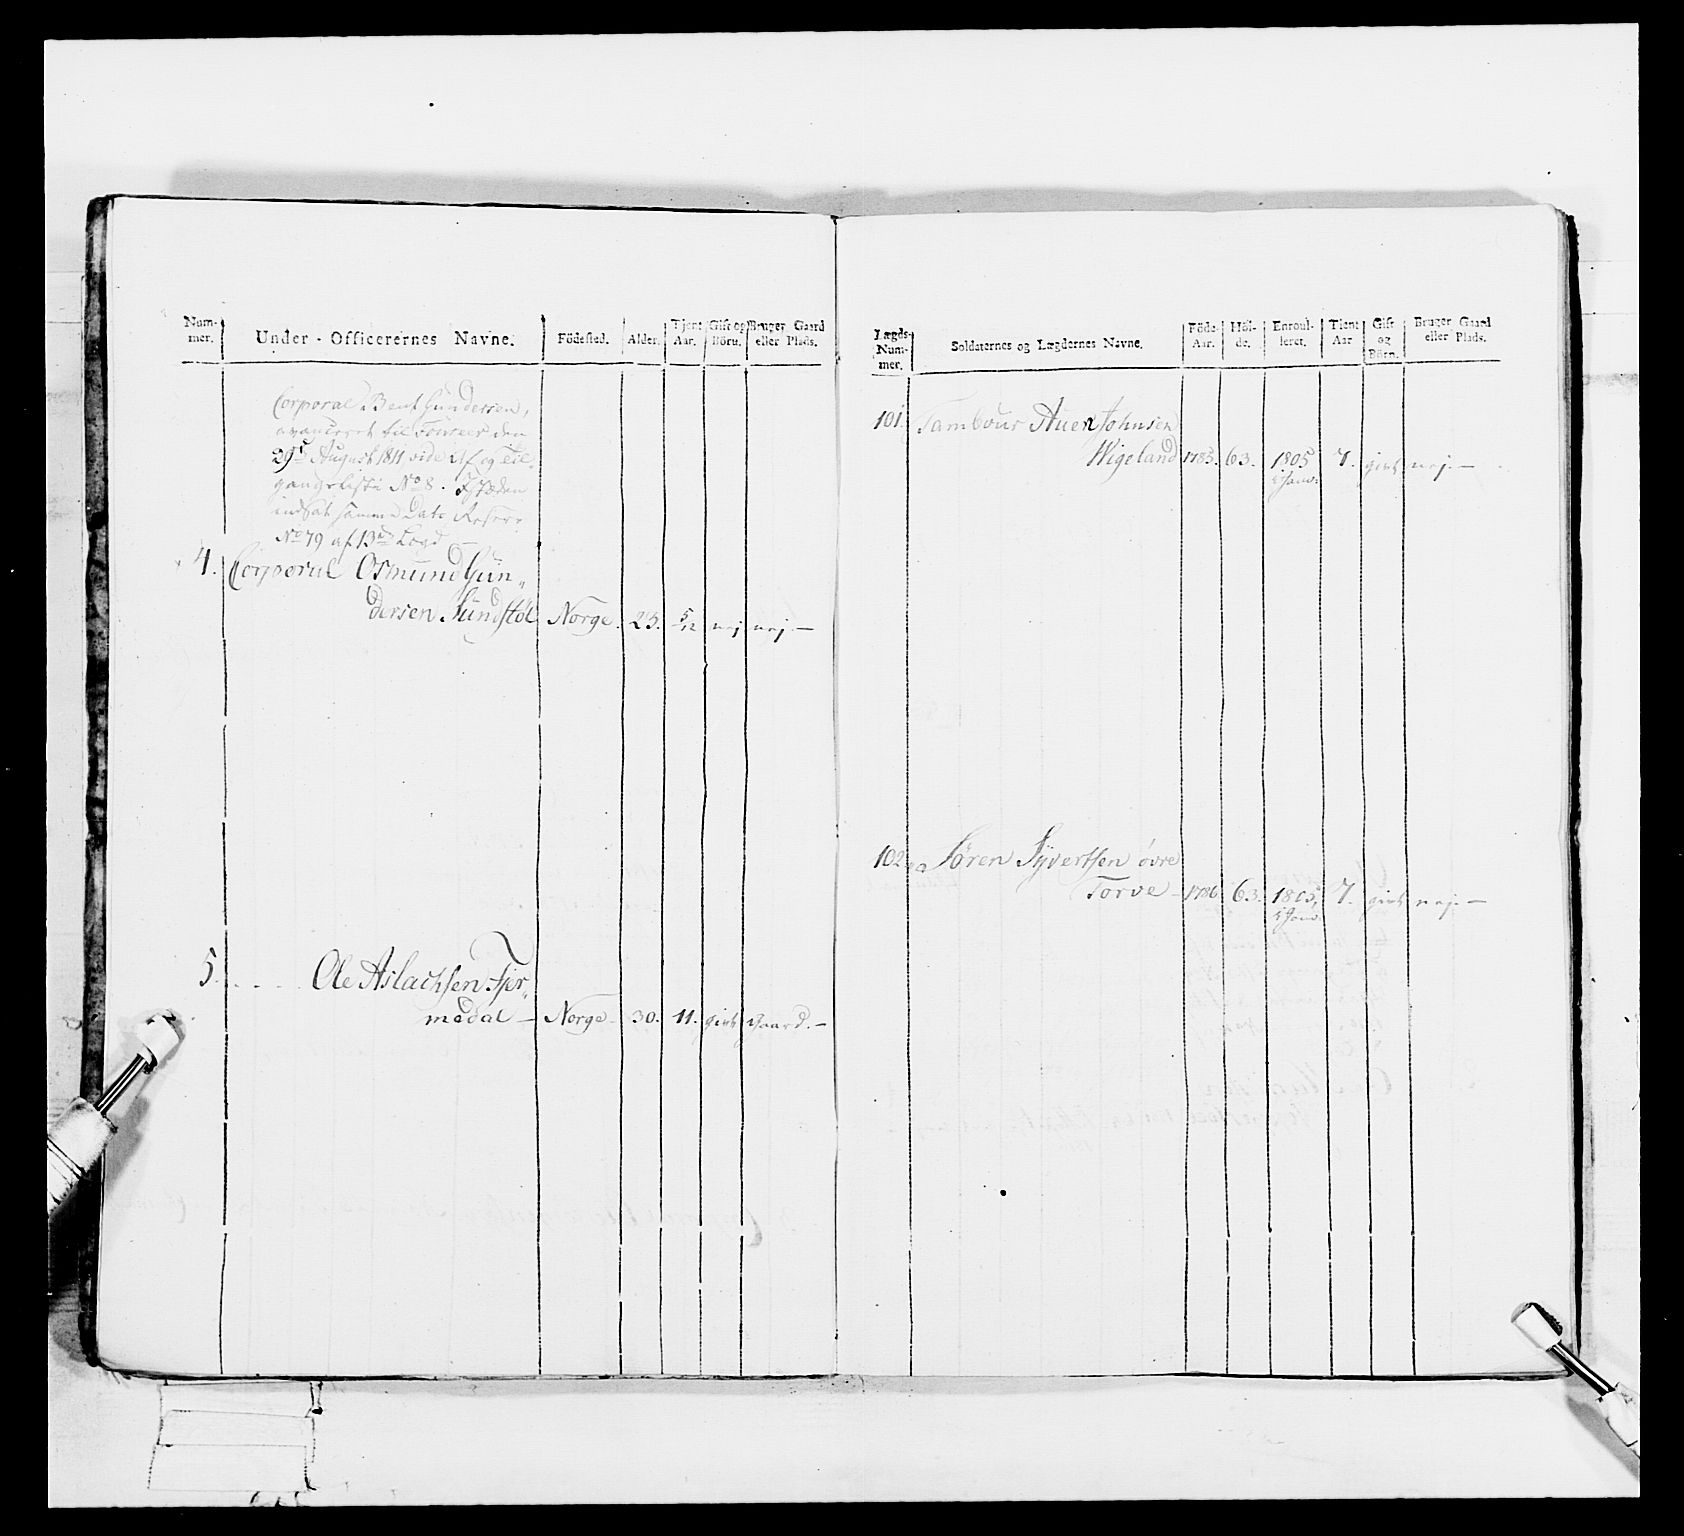 Num-
mer.
Under-Officerernes Navne.
Födested.
Alder.
Tjent
Aar.
Gift og
Börn.
Bruger Gaard
eller Plads.
Corporal Bent Gundersen,
avanceret til Foureer den
29de August 1811 vide Af og Til-
gangsliste No 8. Isteden
indsat samme Dato Reserv
No 79 af 13de Lægd —
4. Corporal Osmund Gun„
dersen Sundstöl Norge. 23. 5/12 nej nej. —
5. . . . . Ole Aslachsen Tjor„
medal — Norge 30. 11. givt Gaard. —
Lægds-
Num-
mer.
Soldaternes og Lægdernes Navne.
Föde-
Aar.
Höi-
de.
Enroul-
leret.
Tjent
Aar
Gift
og
Börn.
Bruger Gaard
eller Plads.
101. Tambour Auen Johnsen
Wigeland 1785. 63. 1805 7. givt nej. —
1 Janv.
102. Sören Syvertsen övre
Torve — 1786. 63. 1805, 7. givt nej. —
1 Janv.